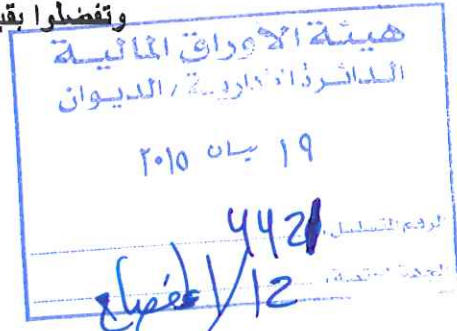 وتفضلوا بقب
هيئة الاوراق المالية
الدائرة الادارية / الديوان
١٩ نيسان ٢٠١٥
الرقم المتسلسل
الجهة المختصة
12/الإفصاح